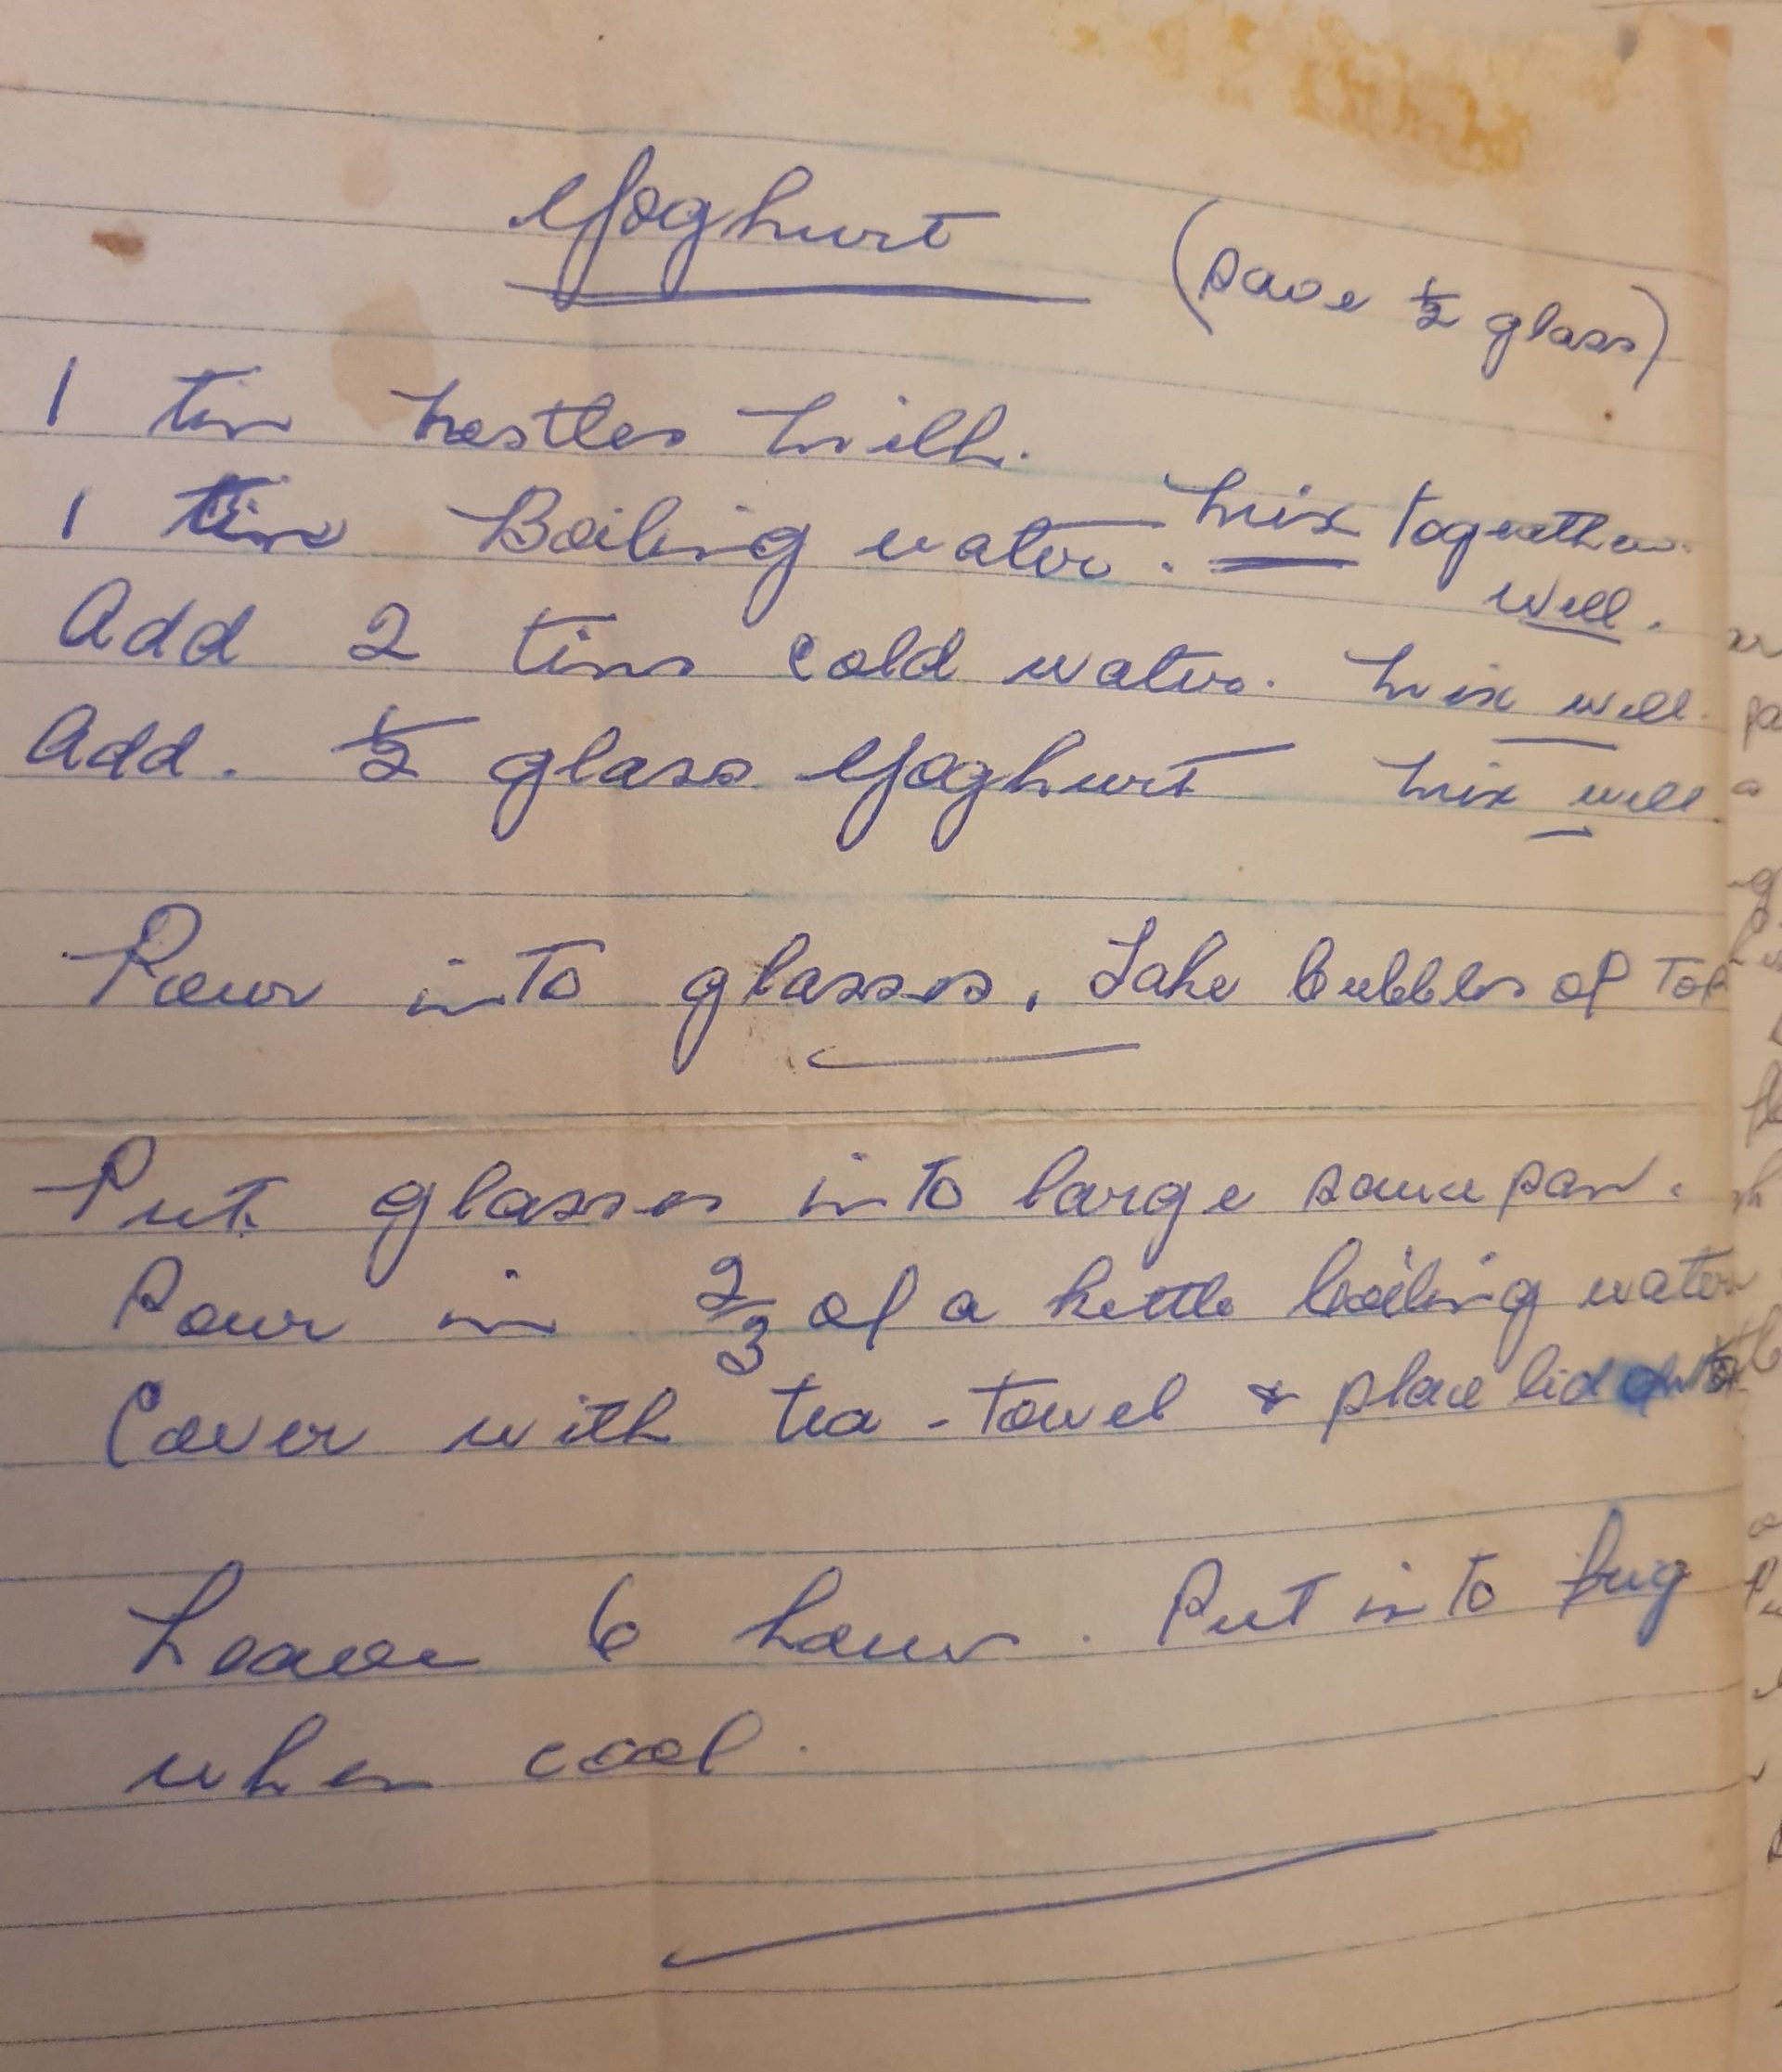 Yoghurt (save ½ glass)
1 tin nestles milk.
1 tin Boiling water. Mix together
well.
Add 2 tins cold water. Mix well.
Add. ½ glass Yoghurt Mix well.
Pour into glasses. Take bubbles of top
Put glasses into large saucepan.
Pour in 2/3 of a kettle boiling water
Cover with tea-towel & place lid on
Leave 6 hour. Put into frig
when cool.